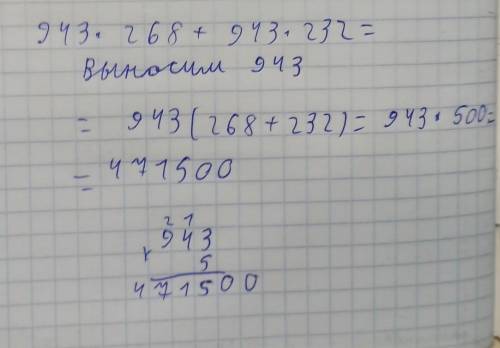 943 · 268 + 943 · 232 =
Выносим 943
= 943(268+232) = 943 · 500 =
= 471500
21
943
× 5
471500